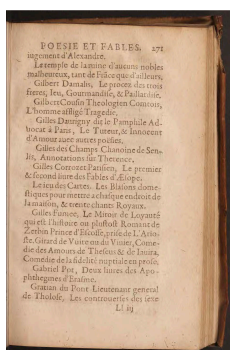 POESIE ET FABLES. 271
iugement d'Alexandre.
Le temple de la ruine d'aucuns nobles
malheureux, tant de Frāce que d'ailleurs.
Gilbert Damalis, Le procez des trois
freres, Ieu, Gourmandise, & Paillardise.
Gilbert Cousin Theologien Comtois,
L'homme affligé Tragedie.
Gilles Daurigny dit le Pamphile Ad-
uocat à Paris, Le Tuteur, & Innocent
d'Amour auec autres poësies.
Gilles des Champs Chanoine de Sen-
lis, Annotations sur Therence.
Gilles Corrozet Parisien, Le premier
& second liure des Fables d'Æsope.
Le ieu des Cartes. Les Blasons dome-
stiques pour mettre a chaque endroit de
la maison, & trente chants Royaux.
Gilles Fumee, Le Miroir de Loyauté
qui est l'histoire ou plustost Romant de
Zerbin Prince d'Escosse, prise de L'Ario-
ste. Girard de Vuitre ou du Viuier, Come-
die des Amours de Theseus & de Ianira,
Comedie de la fidelité nuptiale en prose.
Gabriel Pot, Deux liures des Apo-
phthegmes d'Erasme.
Gratian du Pont Lieutenant general
de Tholose, Les controuerses des sexe
Ll iij